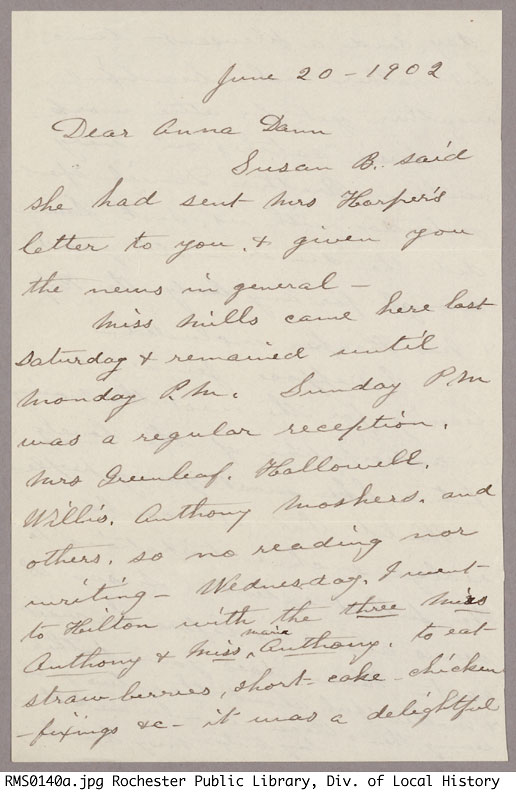 June 20 - 1902
Dear Anna Dann
Susan B. said
she had sent Mrs Harper's
letter to you, & given you
the news in general -
Miss Mills came here last
Saturday & remained until
Monday P.M. Sunday P M
was a regular reception,
Mrs Greenleaf, Hallowell,
Willis, Anthony Moshers, and
others, so no reading nor
writing - Wednesday, I went
to Hilton with the three
Anthony & Miss Maria Anthony, to eat
straw berries, short - cake - chicken
- fixings &c - it was a delightful
RMS0140a.jpg Rochester Public Library, Div. of Local History